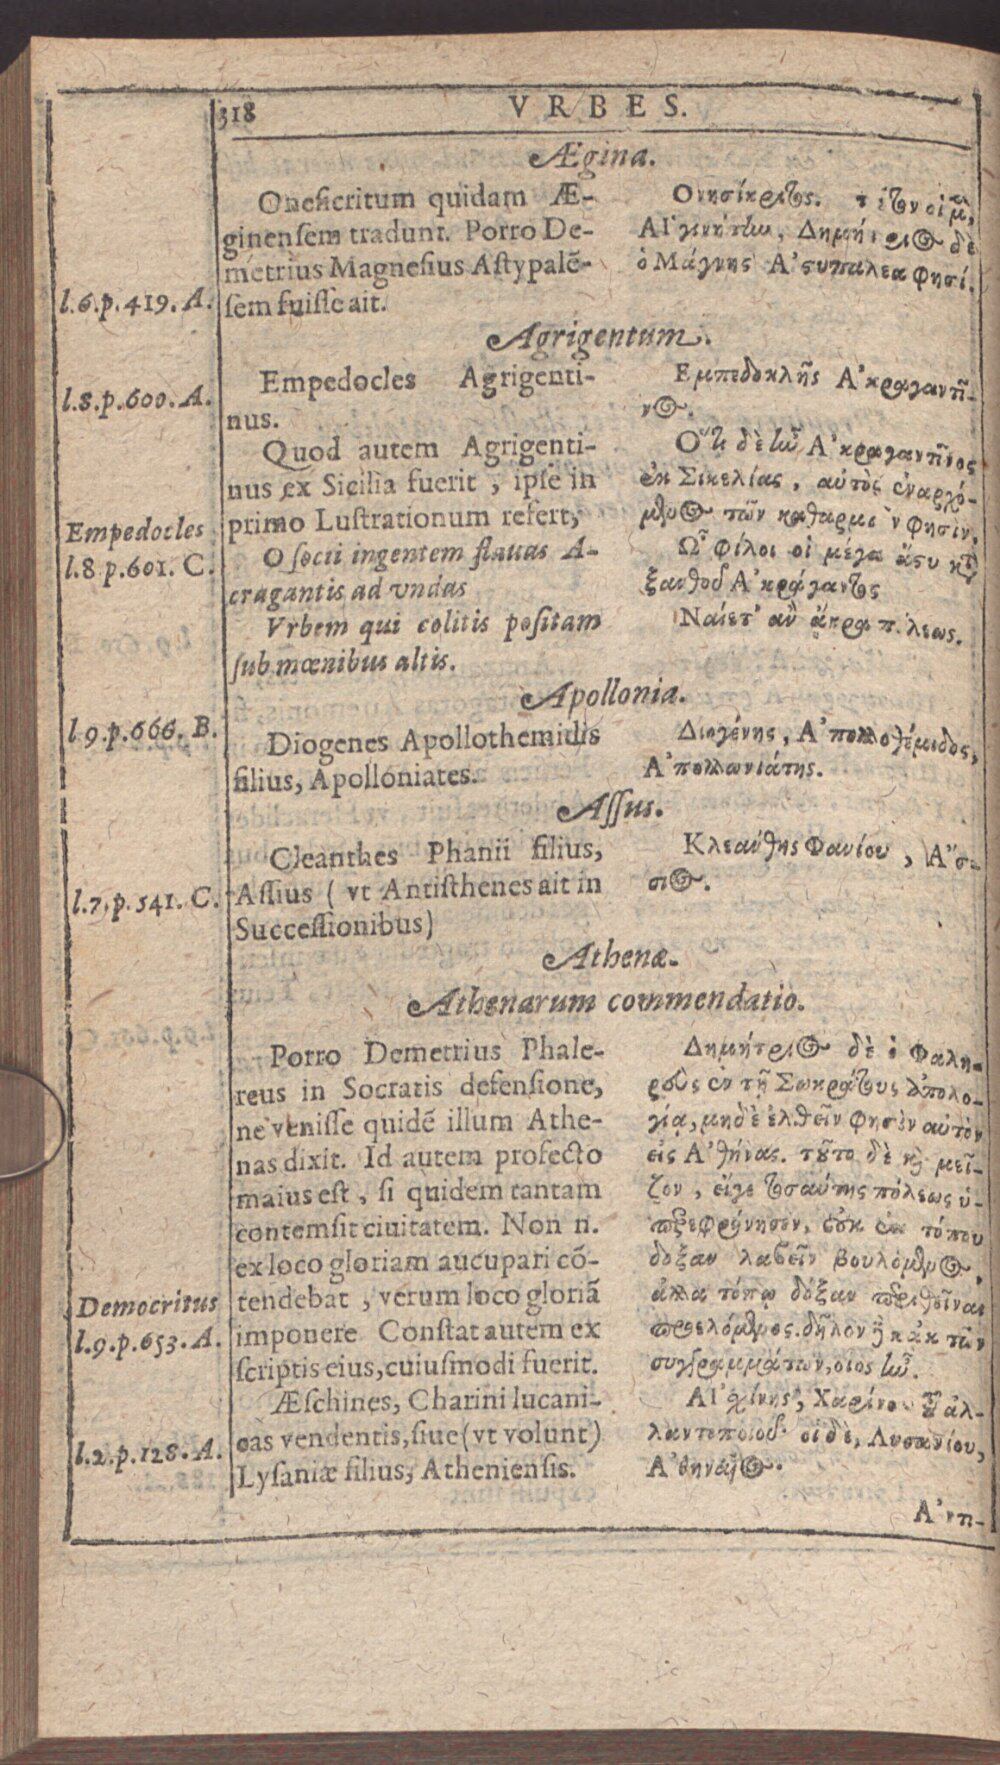 318
VRBES.
Ægina.
Onesicritum quidam Æ-
ginensem tradunt. Porro De-
metrius Magnesius Astypalē-
sem fuisse ait.
l.6.p.419.A.
Ονησίκριτος.
Αἰγινήτην, Δημήτριος δὲ
ὁ Μάγνης Ἀστυπαλεα φησί.
Agrigentum.
Empedocles Agrigenti-
nus.
l.8.p.600.A.
Quod autem Agrigenti-
nus ex Sicilia fuerit, ipse in
primo Lustrationum refert,
O socii ingentem flauas A-
cragantis ad vndas
Vrbem qui colitis positam
sub mœnibus altis.
Empedocles
l.8 p.601. C.
Εμπεδοκλῆς Ἀκραγαντῖ-
νος.
Ὅτι δὲ ἦν Ἀκραγαντῖνος
ἐκ Σικελίας, αὐτὸς ἐναρχό-
μενος τῶν καθαρμῶν φησίν,
Ὦ φίλοι οἳ μέγα ἄστυ κατὰ
ξανθοῦ Ἀκράγαντος
Ναίετ' ἀν ἄκρα πόλεως.
Apollonia.
Diogenes Apollothemidis
filius, Apolloniates.
l.9.p.666. B.
Διογένης, Ἀπολλοθέμιδος,
Ἀπολλωνιάτης.
Assus.
Cleanthes Phanii filius,
Assius (vt Antisthenes ait in
Successionibus)
l.7.p.541. C.
Κλεάνθης Φανίου, Ἄσ-
σιος.
Athenæ.
Athenarum commendatio.
Porro Demetrius Phale-
reus in Socratis defensione,
ne venisse quidē illum Athe-
nas dixit. Id autem profecto
maius est, si quidem tantam
contemsit ciuitatem. Non n.
ex loco gloriam aucupari cō-
tendebat, verum loco gloriā
imponere Constat autem ex
scriptis eius, cuiusmodi fuerit.
Democritus
l.9.p.653.A.
Æschines, Charini lucani-
cas vendentis, siue (vt volunt)
Lysaniæ filius, Atheniensis.
l.2.p.128.A.
Δημήτριος δὲ ὁ Φαλη-
ρεὺς ἐν τῇ Σωκράτους ἀπολο-
γίᾳ, μηδὲ ἐλθεῖν φησὶν αὐτὸν
εἰς Ἀθήνας. τοῦτο δὲ καὶ μεῖ-
ζον, εἴγε τοσαύτης πόλεως ὑ-
περεφρόνησεν, οὐκ ἐκ τόπου
δόξαν λαβεῖν βουλόμενος,
ἀλλὰ τόπῳ δόξαν περιθεῖναι
προελόμενος. δῆλον δὲ κἀκ τῶν
συγγραμμάτων, οἷος ἦν.
Αἰσχίνης, Χαρίνου τοῦ ἀλ-
λαντοποιοῦ οἱ δὲ, Λυσανίου,
Ἀθηναῖος.
Ἀντι-